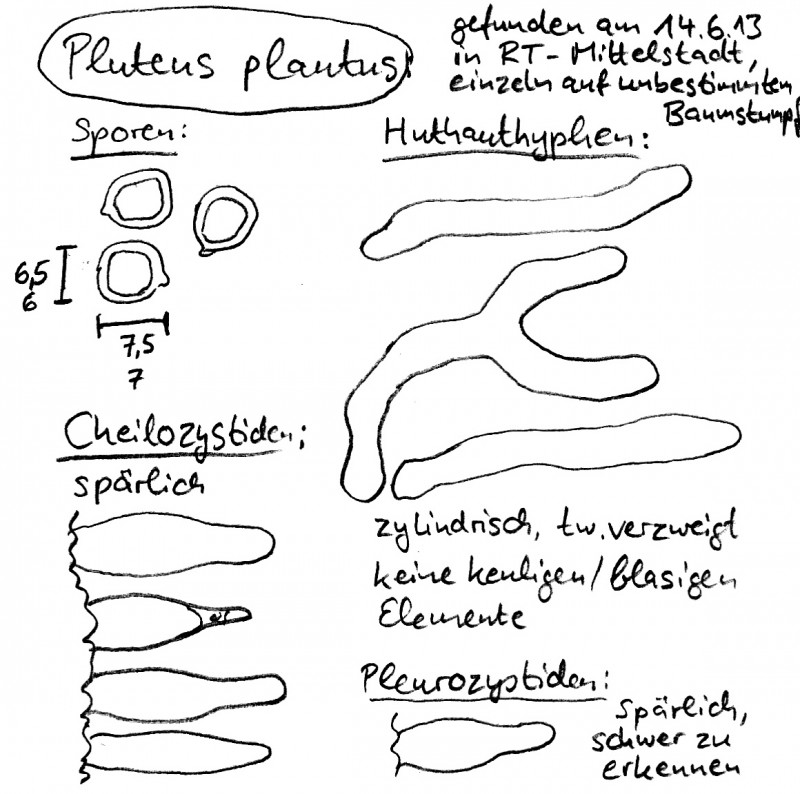 Pluteus plautus:
gefunden am 14.6.13
in RT-Mittelstadt,
einzeln auf unbestimmten
Baumstumpf
Sporen:
6,5
6
7,5
7
Huthauthyphen:
zylindrisch, tw. verzweigt
keine keuligen/blasigen
Elemente
Cheilozystiden:
spärlich
Pleurozystiden:
spärlich,
schwer zu
erkennen